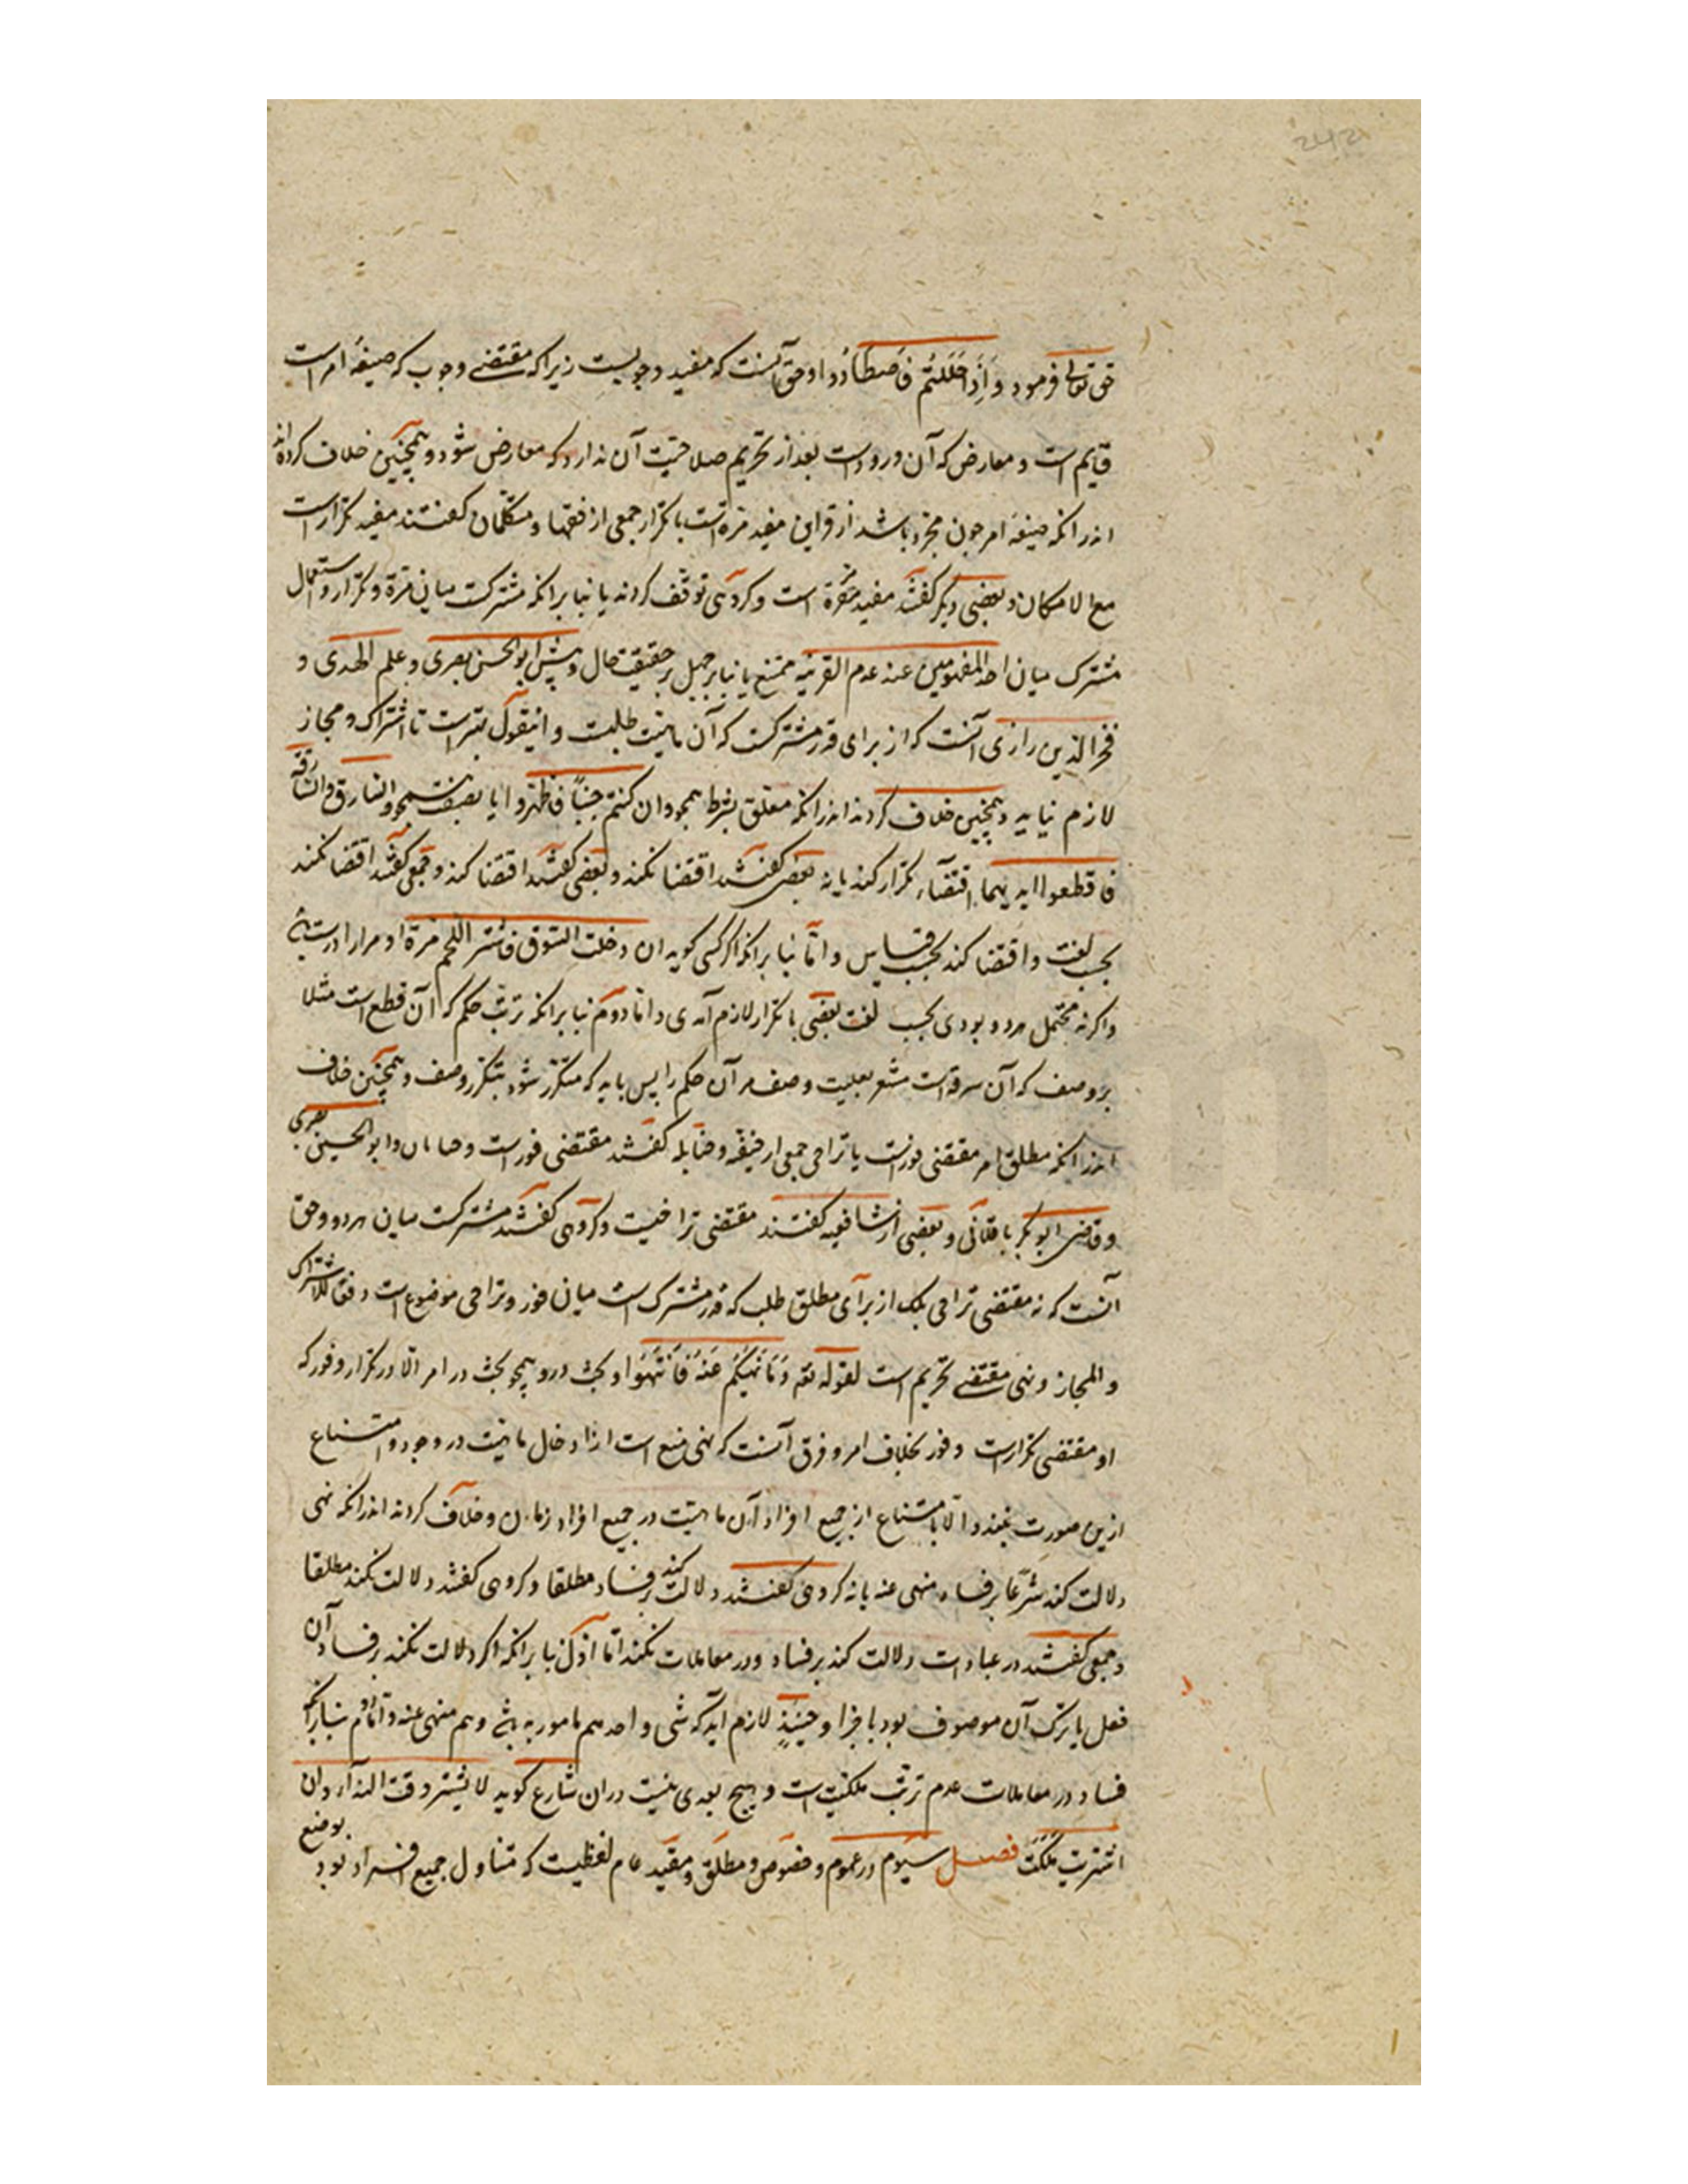 حق تعالی فرمود وَاِذَا حَلَلْتُم فَاصْطَادُوا و حق آنست که مفید وجوبست زیرا که مقتضی وجوب که صیغهٔ امر است
قایم است و معارض که آن ورود است بعد از تحریم صلاحیت آن ندارد که معارض شود و همچنین خلاف کرده‌اند
اندرانکه صیغهٔ امر چون مجرد باشد از قراین مفید مرة است یا تکرار جمعی از فقها و متکلمان گفتند مفید تکرار است
مع الامکان و بعضی دیگر گفتند مفید مرة است و گروهی توقف کردند یا بنا برانکه مشترکست میان مرة و تکرار و استعمال
مشترک میان احد المفهومین عند عدم القرینه ممتنع یا بنا بر جهل بر حقیقت حال و پیش ابو الحسن بصری و علم الهدی و
فخر الدین رازی آنست که از برای قدر مشترکست که آن ماهیت طلبست و اینقول بهتر است تا اشتراک و مجاز
لازم نیاید و همچنین خلاف کردند اندرانکه معلق بشرط همچو وان کنتم جنباً فاطهروا یا بصفت همچو والسارق والسارقة
فاقطعوا ایدیهما اقتضاء تکرار کند یا نه بعضی گفتند اقتضا نکند و بعضی گفتند اقتضا کند و جمعی گفتند اقتضا نکند
بحسب لغت و اقتضا کند بحسب قیاس و اما بنا برانکه اگر کسی گوید ان دخلت السوق فاشتر اللحم مرة او مرارا درست باشد
و اگر نه محتمل هر دو بودی بحسب لغت بعضی یا تکرار لازم آمدی و اما دوم بنا برانکه ترتب حکم که آن قطع است مثلا
بر وصف که آن سرقه است مشعر بعلیت وصف مر آن حکم را پس باید که متکرر شود بتکرر وصف و همچنین خلاف
اندرانکه مطلق امر مقتضی فور است یا تراخی جمعی از حنیفه و حنابله گفتند مقتضی فور است و ابو الحسین بصری
و قاضی ابو بکر باقلانی و بعضی از شافعیه گفتند مقتضی تراخیست و گروهی گفتند مشترکست میان هر دو و حق
آنست که نه مقتضی تراخی بلک از برای مطلق طلب که قدر مشترک است میان فور و تراخی موضوع است دفعا للاشتراک
والمجاز و نهی مقتضی تحریم است لقوله تعه وَمَا نَهٰیکُم عَنهُ فَانْتَهُوا و بحث درو همچو بحث در امر الا در تکرار و فور که
او مقتضی تکرار است و فور بخلاف امر و فرق آنست که نهی منع است از ادخال ماهیت در وجود و امتناع
ازین صورت نبندد الا بامتناع از جمیع افراد آن ماهیت در جمیع افراد زمان و خلاف کردند اندرانکه نهی
دلالت کند شرعا بر فساد منهی عنه یا نه گروهی گفتند دلالت کند بر فساد مطلقا و گروهی گفتند دلالت نکند مطلقا
و جمعی گفتند در عبادات دلالت کند بر فساد و در معاملات نکند اما اول بنا برانکه اگر دلالت نکند بر فساد آن
فعل یا ترک آن موصوف بود باجزا و حینئذٍ لازم آید که شی واحد هم مامور به باشد و هم منهی عنه و اما دوم بنا برانکه
فساد در معاملات عدم ترتب ملکیت است و هیچ بعدی نیست دران شارع گوید لا تشتر وقت الندا وان
اشتریت ملکت فصل سیوم در عموم و خصوص و مطلق و مقید عام لفظیست که متناول جمیع افراد بود بوضع